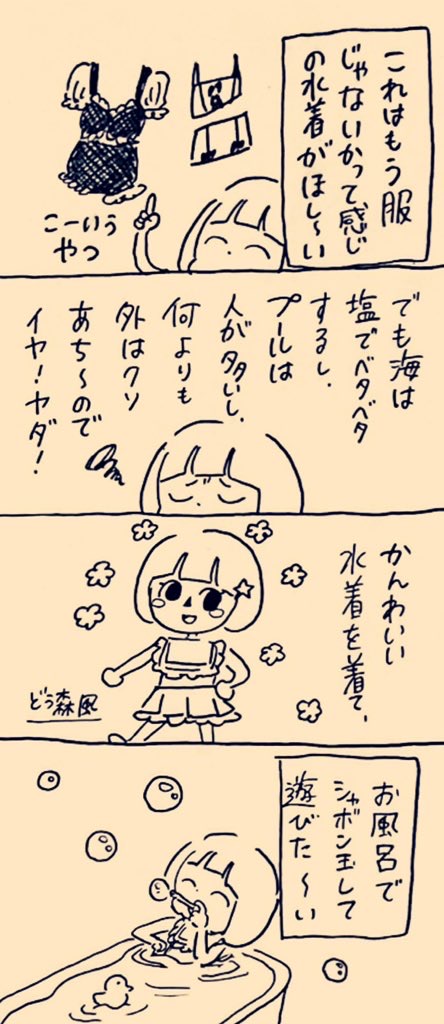 これはもう服
じゃないかって感じ
の水着がほし〜い
こーいう
やつ
でも海は
塩でベタベタ
するし、
プールは
人が多いし、
何よりも
外はクソ
あち〜ので
イヤ！ヤダ！
かんわいい
水着を着て、
どう森風
お風呂で
シャボン玉して
遊びた〜い